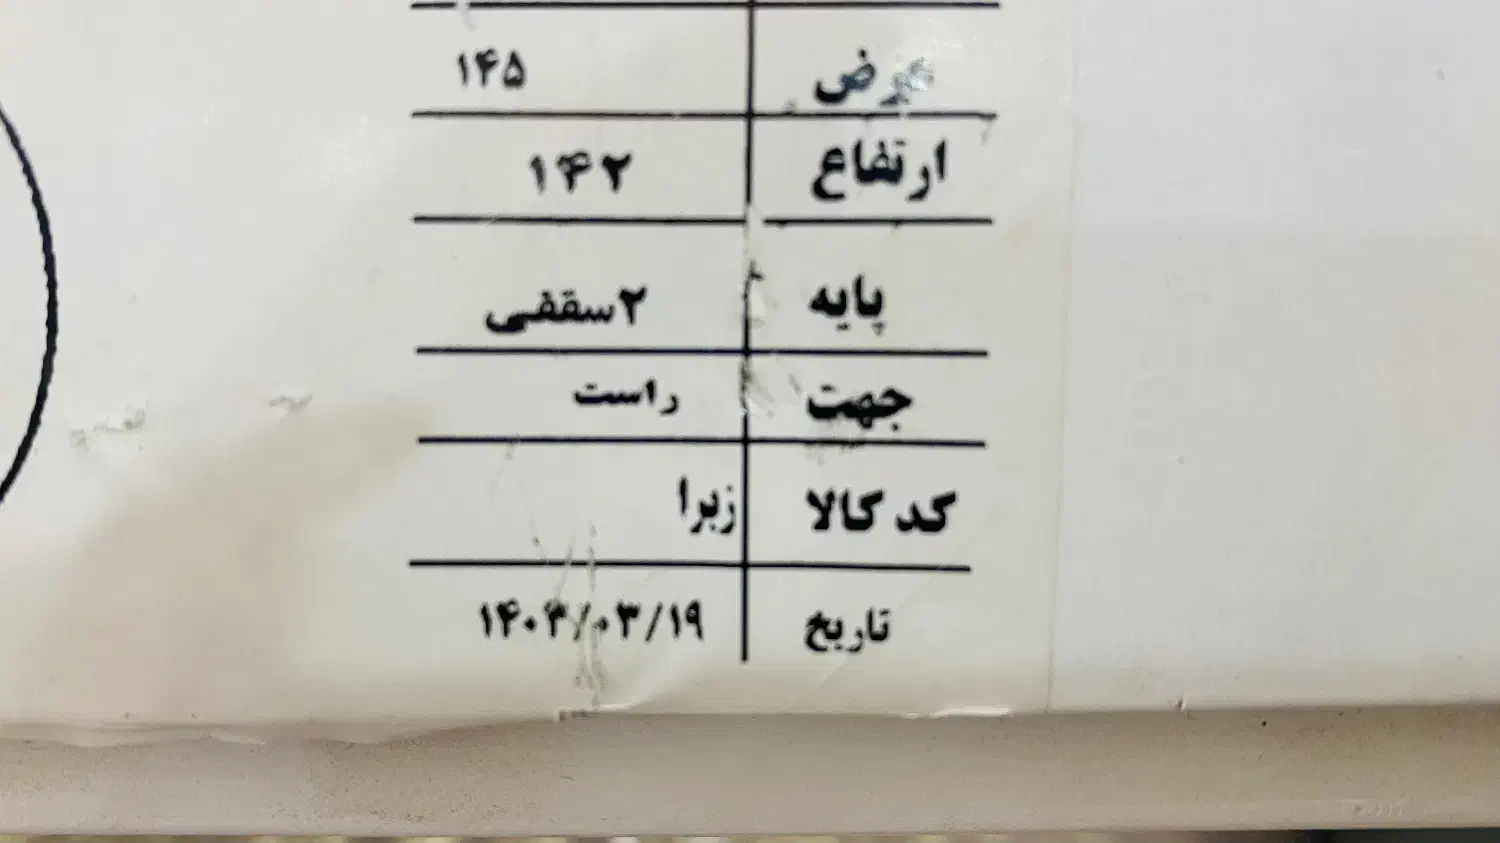 عرض ۱۴۵
ارتفاع ۱۴۲
پایه ۲سقفی
جهت راست
کد کالا زبرا
تاریخ ۱۴۰۳/۰۳/۱۹